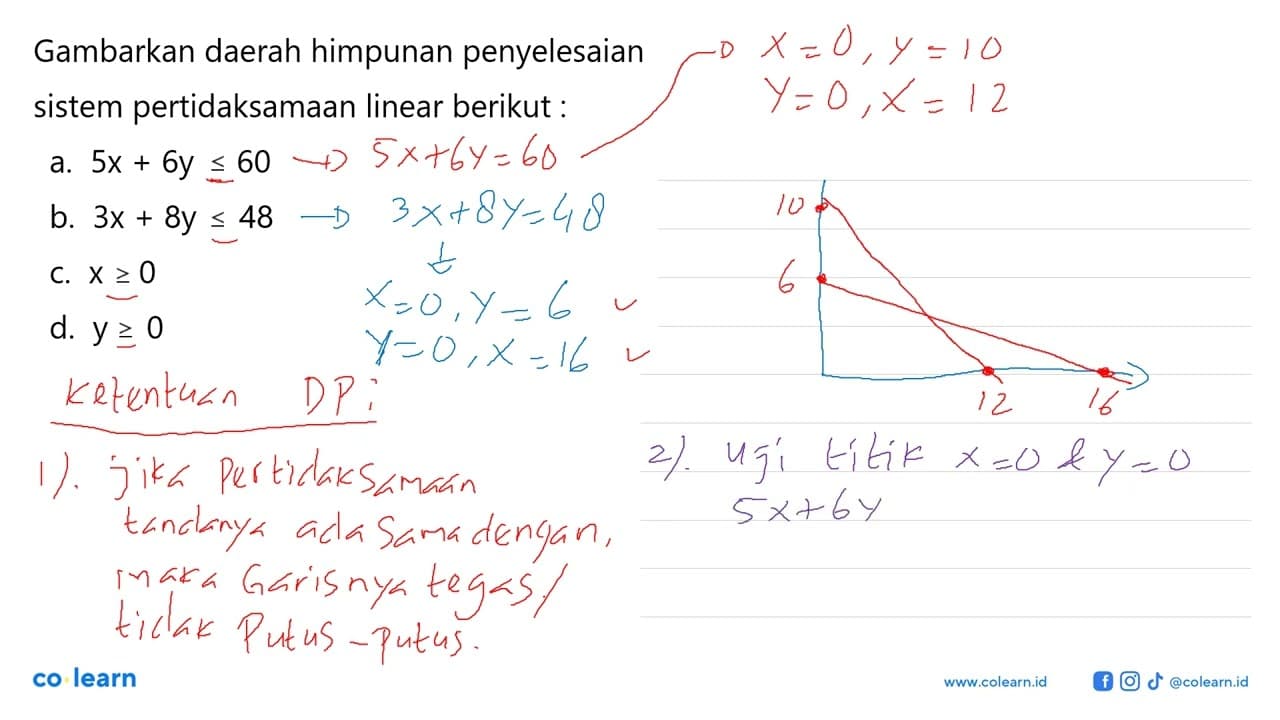 Gambarkan daerah himpunan penyelesaian
sistem pertidaksamaan linear berikut :
a. 5x + 6y ≤ 60 → 5x+6y=60
→ x=0, y=10
y=0, x=12
b. 3x + 8y ≤ 48 → 3x+8y=48
↓
x=0, y=6 ✓
y=0, x=16 ✓
c. x ≥ 0
d. y ≥ 0
Ketentuan DP:
1). jika Pertidaksamaan
tandanya ada sama dengan,
maka Garisnya tegas/
tidak Putus-putus.
10
6
12 16
2). Uji titik x=0 & y=0
5x+6y
co·learn
www.colearn.id @colearn.id